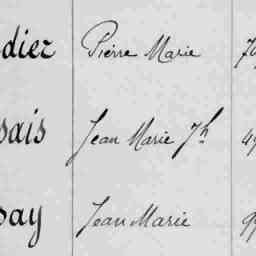 diez Pierre Marie
sais Jean Marie Jh
say Jean Marie